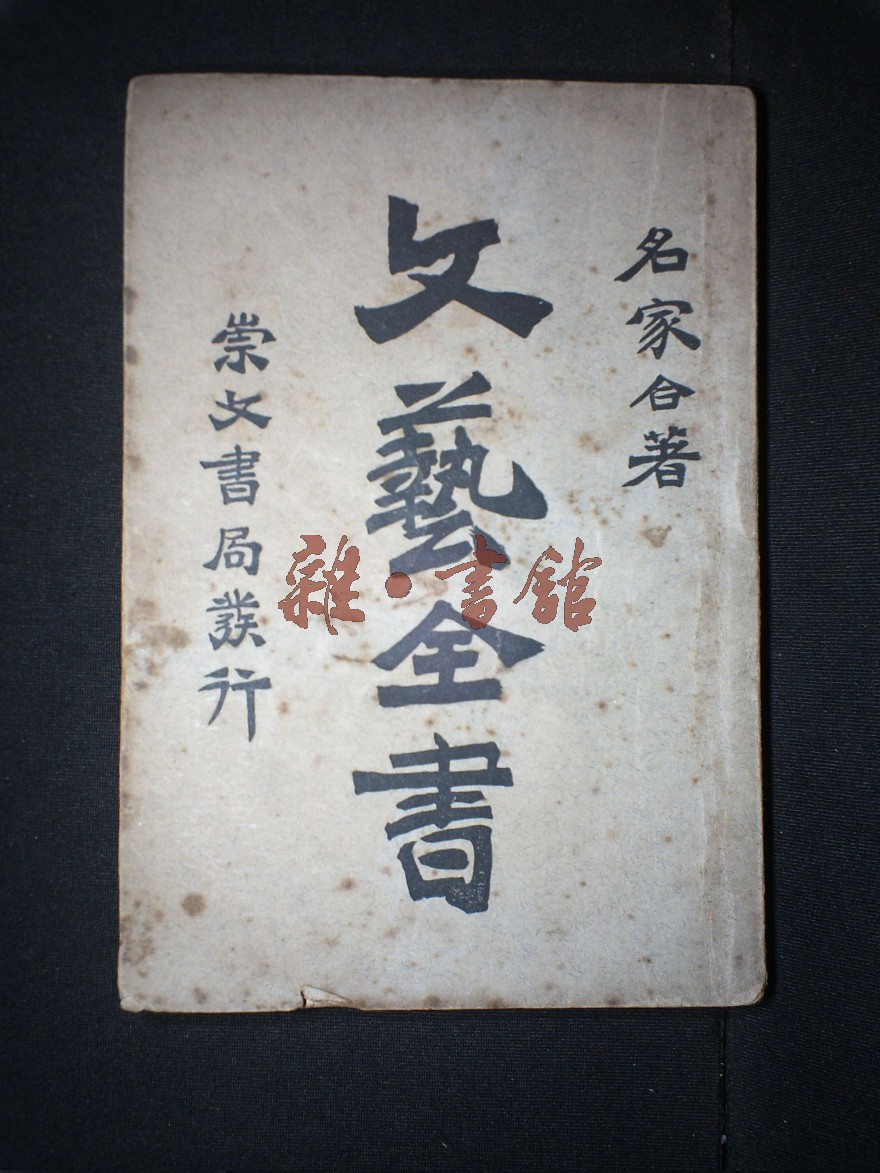 名家合著
文藝全書
崇文書局發行
雜·書館